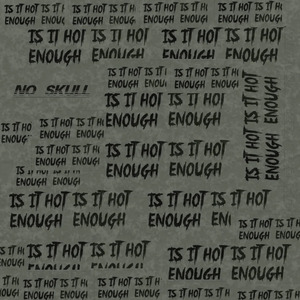 IS IT HOT IS IT HOT IS IT HOT IS IT HOT IS IT HOT
ENOUGH ENOUGH ENOUGH ENOUGH ENOUGH
IS IT HOT IS IT HOT IS IT HOT IS IT HOT
ENOUGH ENOUGH ENOUGH ENOUGH
IS IT HOT IS IT HOT
ENOUGH ENOUGH
NO SKULL
IS IT HOT IS IT HOT
ENOUGH ENOUGH
IS IT HOT
ENOUGH
IS IT HOT IS IT HOT IS IT HOT
ENOUGH ENOUGH
IS IT HOT IS IT HOT
ENOUGH ENOUGH
IS IT HOT IS IT HOT
ENOUGH ENOUGH
IS IT HOT IS IT HOT IS IT HOT IS IT HOT
ENOUGH ENOUGH ENOUGH
IS IT HOT IS IT HOT
ENOUGH ENOUGH
IS IT HOT IS IT HOT IS IT HOT IS IT HOT
ENOUGH ENOUGH
IS IT HOT IS IT HOT IS IT HOT IS IT HOT
ENOUGH ENOUGH ENOUGH ENOUGH